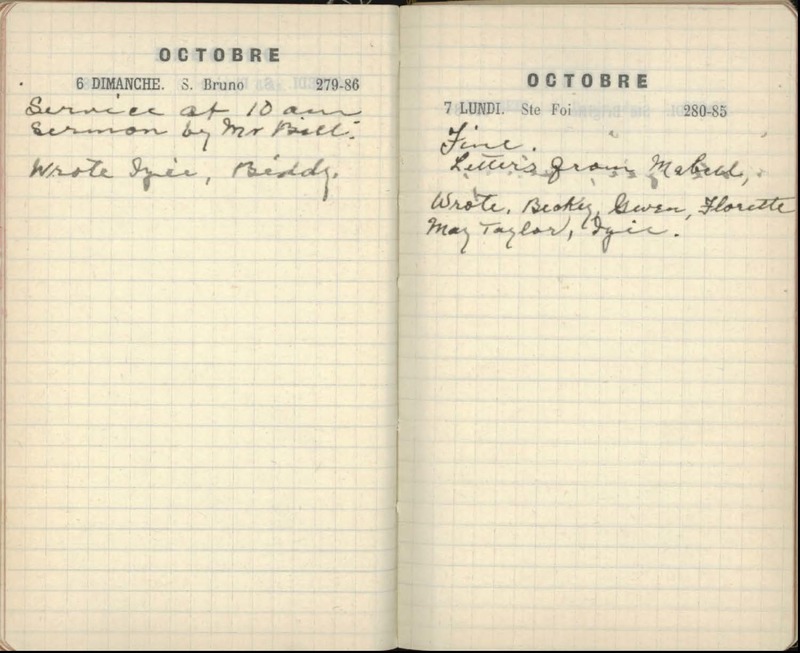 OCTOBRE
6 DIMANCHE. S. Bruno 279-86
Service at 10 am
Sermon by Mr Bell.
Wrote Izie, Biddy.
OCTOBRE
7 LUNDI. Ste Foi 280-85
Fine.
Letters from Mabel,
Wrote, Becky, Gwen, Florette
May Taylor, Izie.